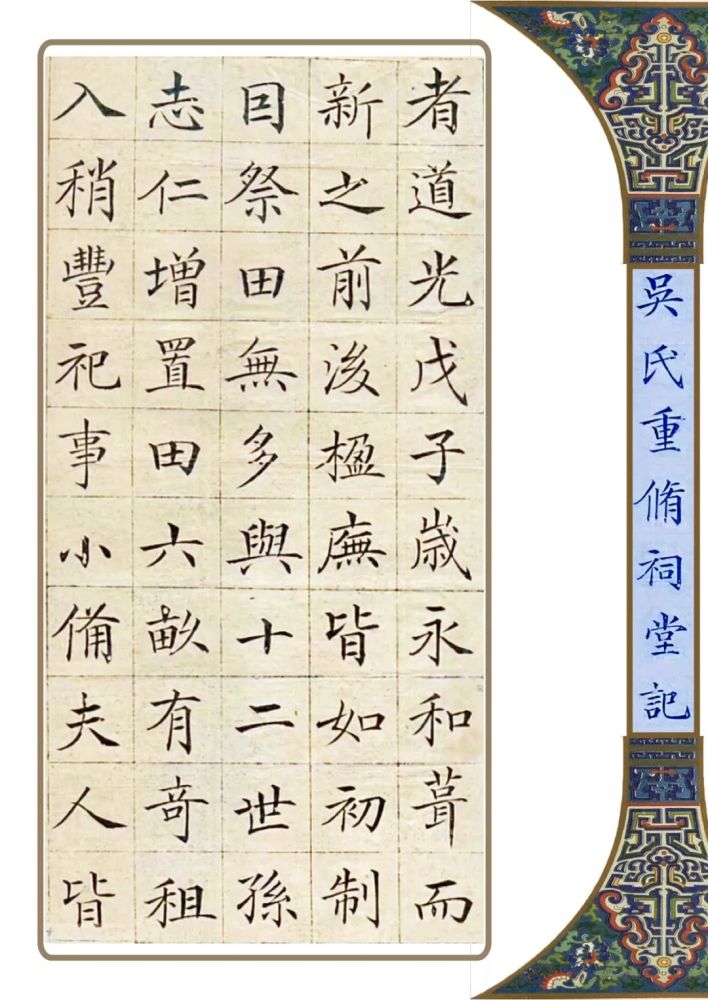 吳氏重脩祠堂記
者道光戊子歲永和葺而
新之前後楹廡皆如初制
囙祭田無多與十二世孫
志仁增置田六畝有奇租
入稍豐祀事小備夫人皆